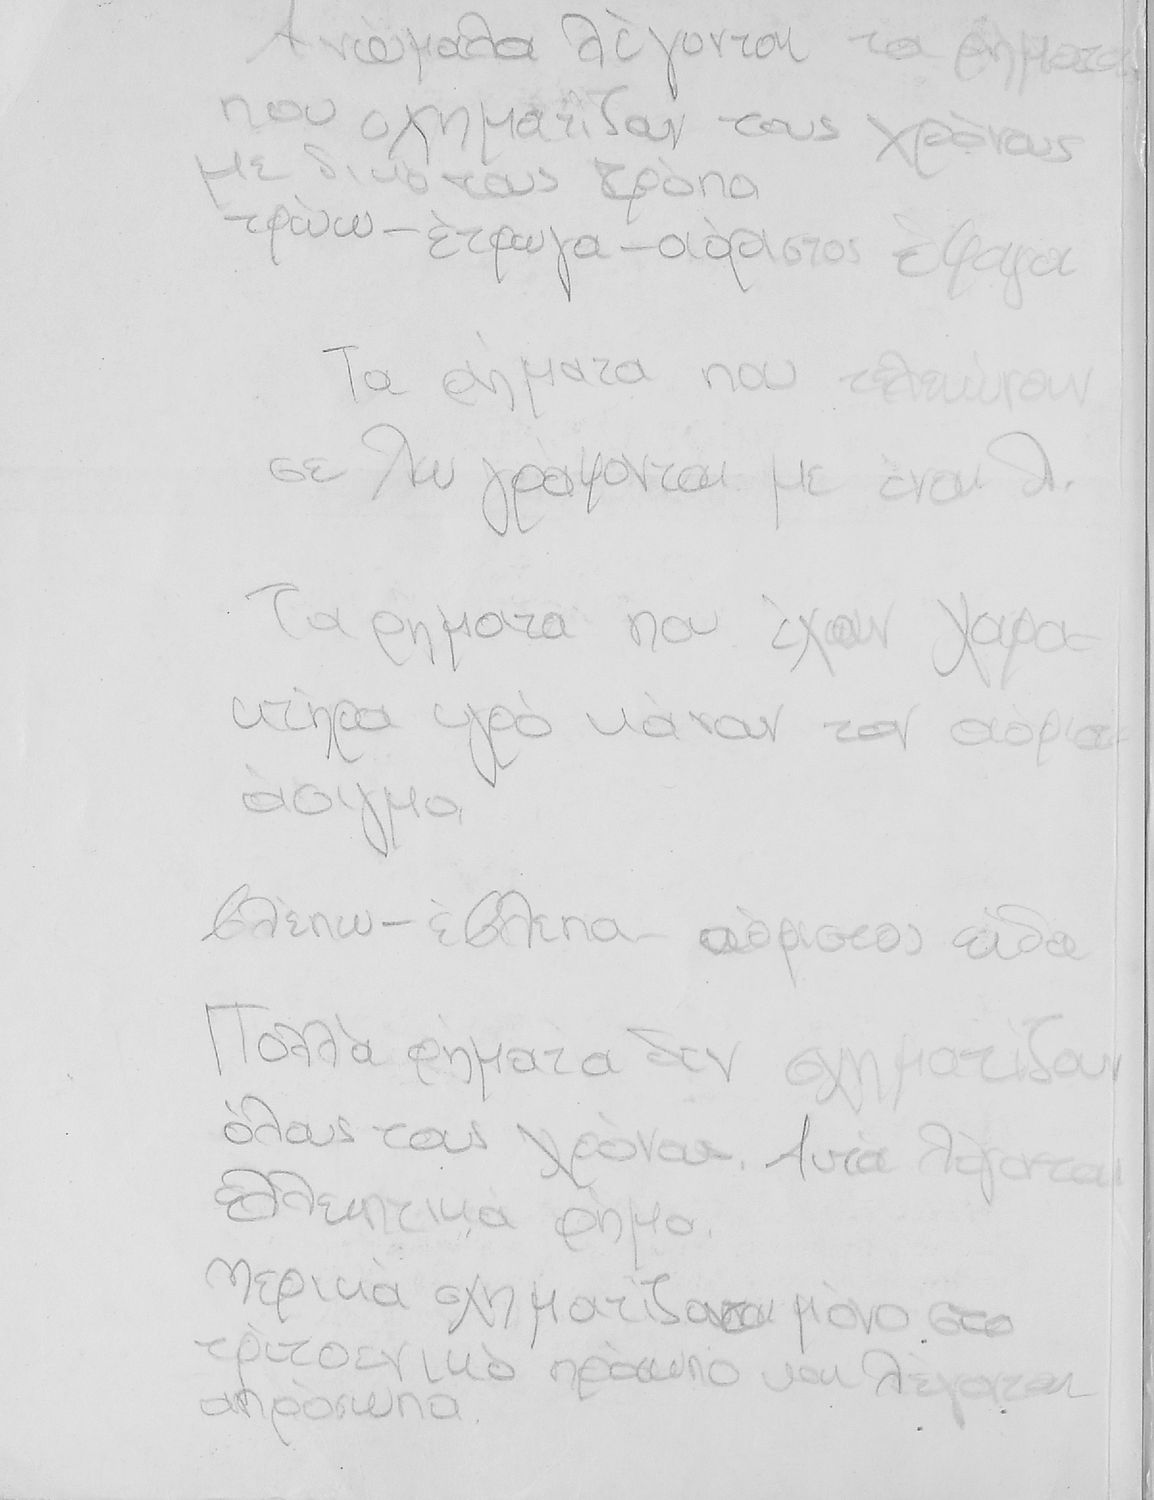 Ανώμαλα λέγονται τα ρήματα
που σχηματίζουν τους χρόνους
με δικό τους τρόπο
τρώω – έτρωγα – αόριστος έφαγα
Τα ρήματα που τελειώνουν
σε λω γράφονται με ένα λ.
Τα ρήματα που έχουν χαρα-
κτήρα υγρό κάνουν τον αόριστο
άσιγμο.
βλέπω – έβλεπα – αόριστος είδα
Πολλά ρήματα δεν σχηματίζουν
όλους τους χρόνους. Αυτά λέγονται
ελλειπτικά ρήμα.
Μερικά σχηματίζονται μόνο στο
τρίτο ενικό πρόσωπο και λέγονται
απρόσωπα.